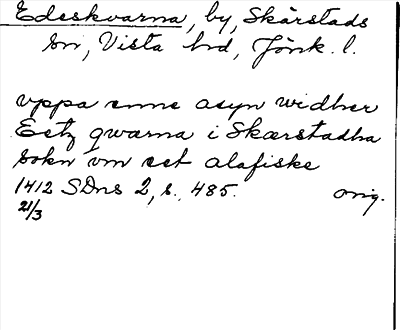 Edeskvarna, by, Skärstads
sn, Vista hd, Jönk. l.
vppa enne asyn widher
Eetz qwarna i Skærstadha
sokn vm eet alafiske
1412 SDns 2, s. 485. orig.
21/3